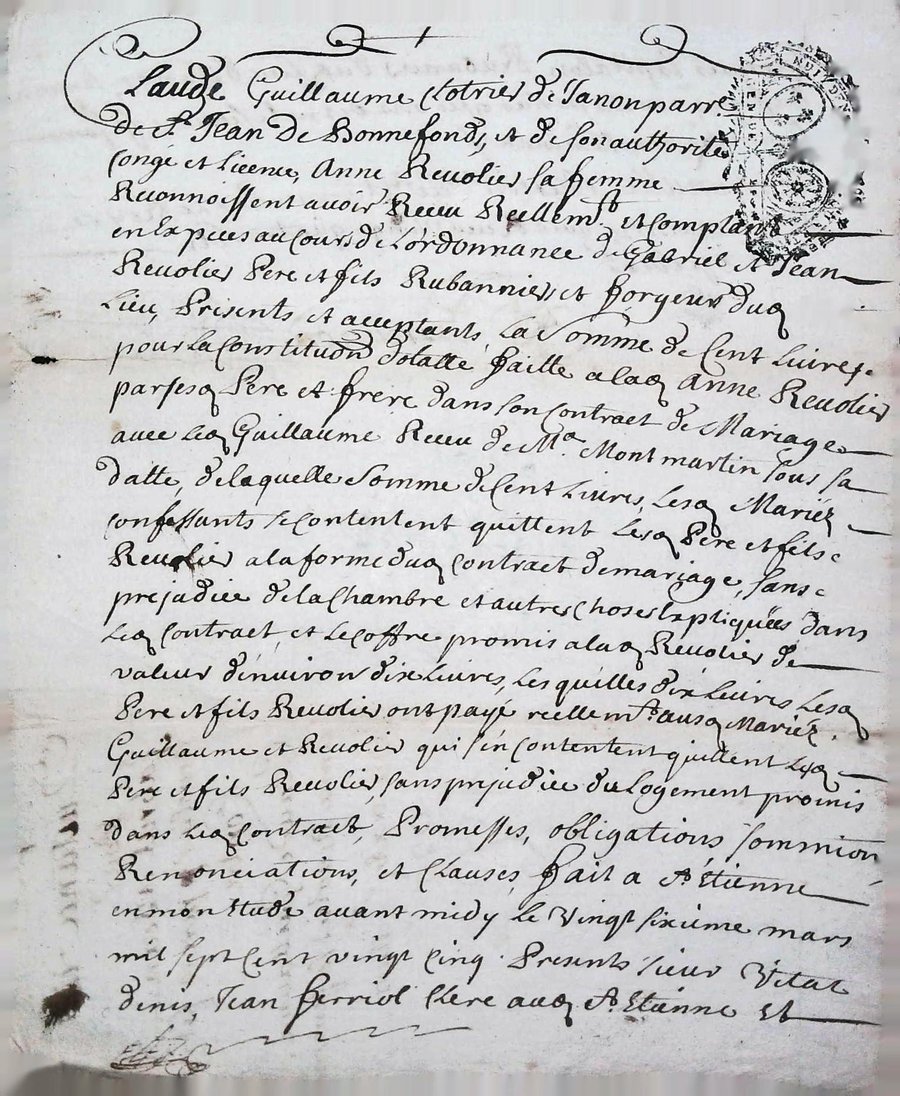 Claude Guillaume Clotrier de Janon parr.
de St. Jean de Bonnefonds, et de son authorité
Congé et Licence, Anne Revolier sa femme
Reconnoissent avoir Receu Reellemt. et Comptant
en Espices au Cours de L'ordonnance de Gabriel et Jean
Revolier Pere et fils Rubanniers et forgeurs dud.
Lieu, Présents et acceptants, La Somme de Cent Livres
pour La Constitution dotalle faitte a lad. Anne Revolier
par sesd. Pere et frere dans son Contract de Mariage
avec led. Guillaume Receu de Me. Montmartin sous sa
datte, de laquelle Somme de Cent Livres, Lesd. Mariéz
Confessants se Contentent quittent Lesd. Pere et fils
Revolier a la forme dud. Contract de mariage, sans
préjudice de la Chambre et autres Choses Expliquées dans
Led. Contract, et Le Coffre promis a lad. Revolier de
valeur d'environ dix Livres, Les quelles dix Livres Lesd.
Pere et fils Revolier ont payé reellemt. ausd. Mariéz
Guillaume et Revolier qui s'en Contentent quittent Lesd.
Pere et fils Revolier, sans prejudice du Logement promis
dans Led. Contract, Promesses, obligations Sommission
Renonciations, et Clauses, fait a St. Etienne
en mon Etude avant midy Le Vingt sixieme mars
mil sept Cent vingt Cinq. Presents sieur Vital
denis, Jean ferriol Clerc aud. St. Etienne Et